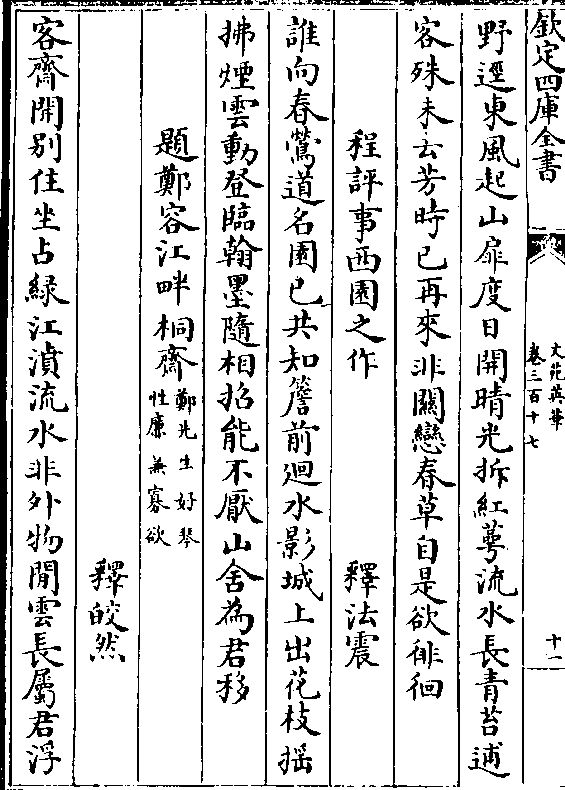 欽定四庫全書
文苑英華
卷三百十七
十一
野逕東風起山扉度日開晴光拆紅萼流水長青苔逋
客殊未去芳時已再來非關戀春草自是欲徘徊
程評事西園之作
釋法震
誰向春鶯道名園已共知簷前廻水影城上出花枝揺
拂煙雲動登臨翰墨隨相招能不厭山舍為君移
題鄭容江畔桐齋
鄭先生好琴
性廉無寡欲
釋皎然
客齋開別住坐占緑江濆流水非外物閒雲長屬君浮